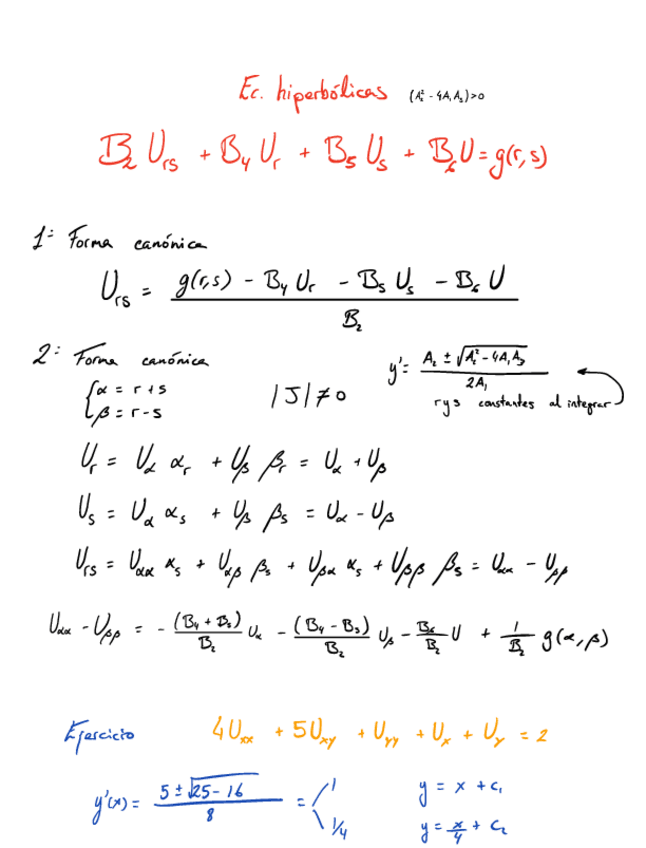 Ec. hiperbólicas (A₂² - 4A₁A₃) > 0
B₂ U_rs + B₄ U_r + B₅ U_s + B₆ U = g(r,s)
1ª Forma canónica
U_rs = (g(r,s) - B₄ U_r - B₅ U_s - B₆ U) / B₂
2ª Forma canónica
y' = (A₂ ± √(A₂² - 4A₁A₃)) / 2A₁
{α = r + s
{β = r - s
|J| ≠ 0
r y s constantes al integrar
U_r = U_α α_r + U_β β_r = U_α + U_β
U_s = U_α α_s + U_β β_s = U_α - U_β
U_rs = U_αα α_s + U_αβ β_s + U_βα α_s + U_ββ β_s = U_αα - U_ββ
U_αα - U_ββ = - (B₄ + B₅)/B₂ U_α - (B₄ - B₅)/B₂ U_β - B₆/B₂ U + 1/B₂ g(α,β)
Ejercicio 4U_xx + 5U_xy + U_yy + U_x + U_y = 2
y'(x) = (5 ± √(25 - 16)) / 8 = < 1 y = x + c₁
1/4 y = x/4 + c₂